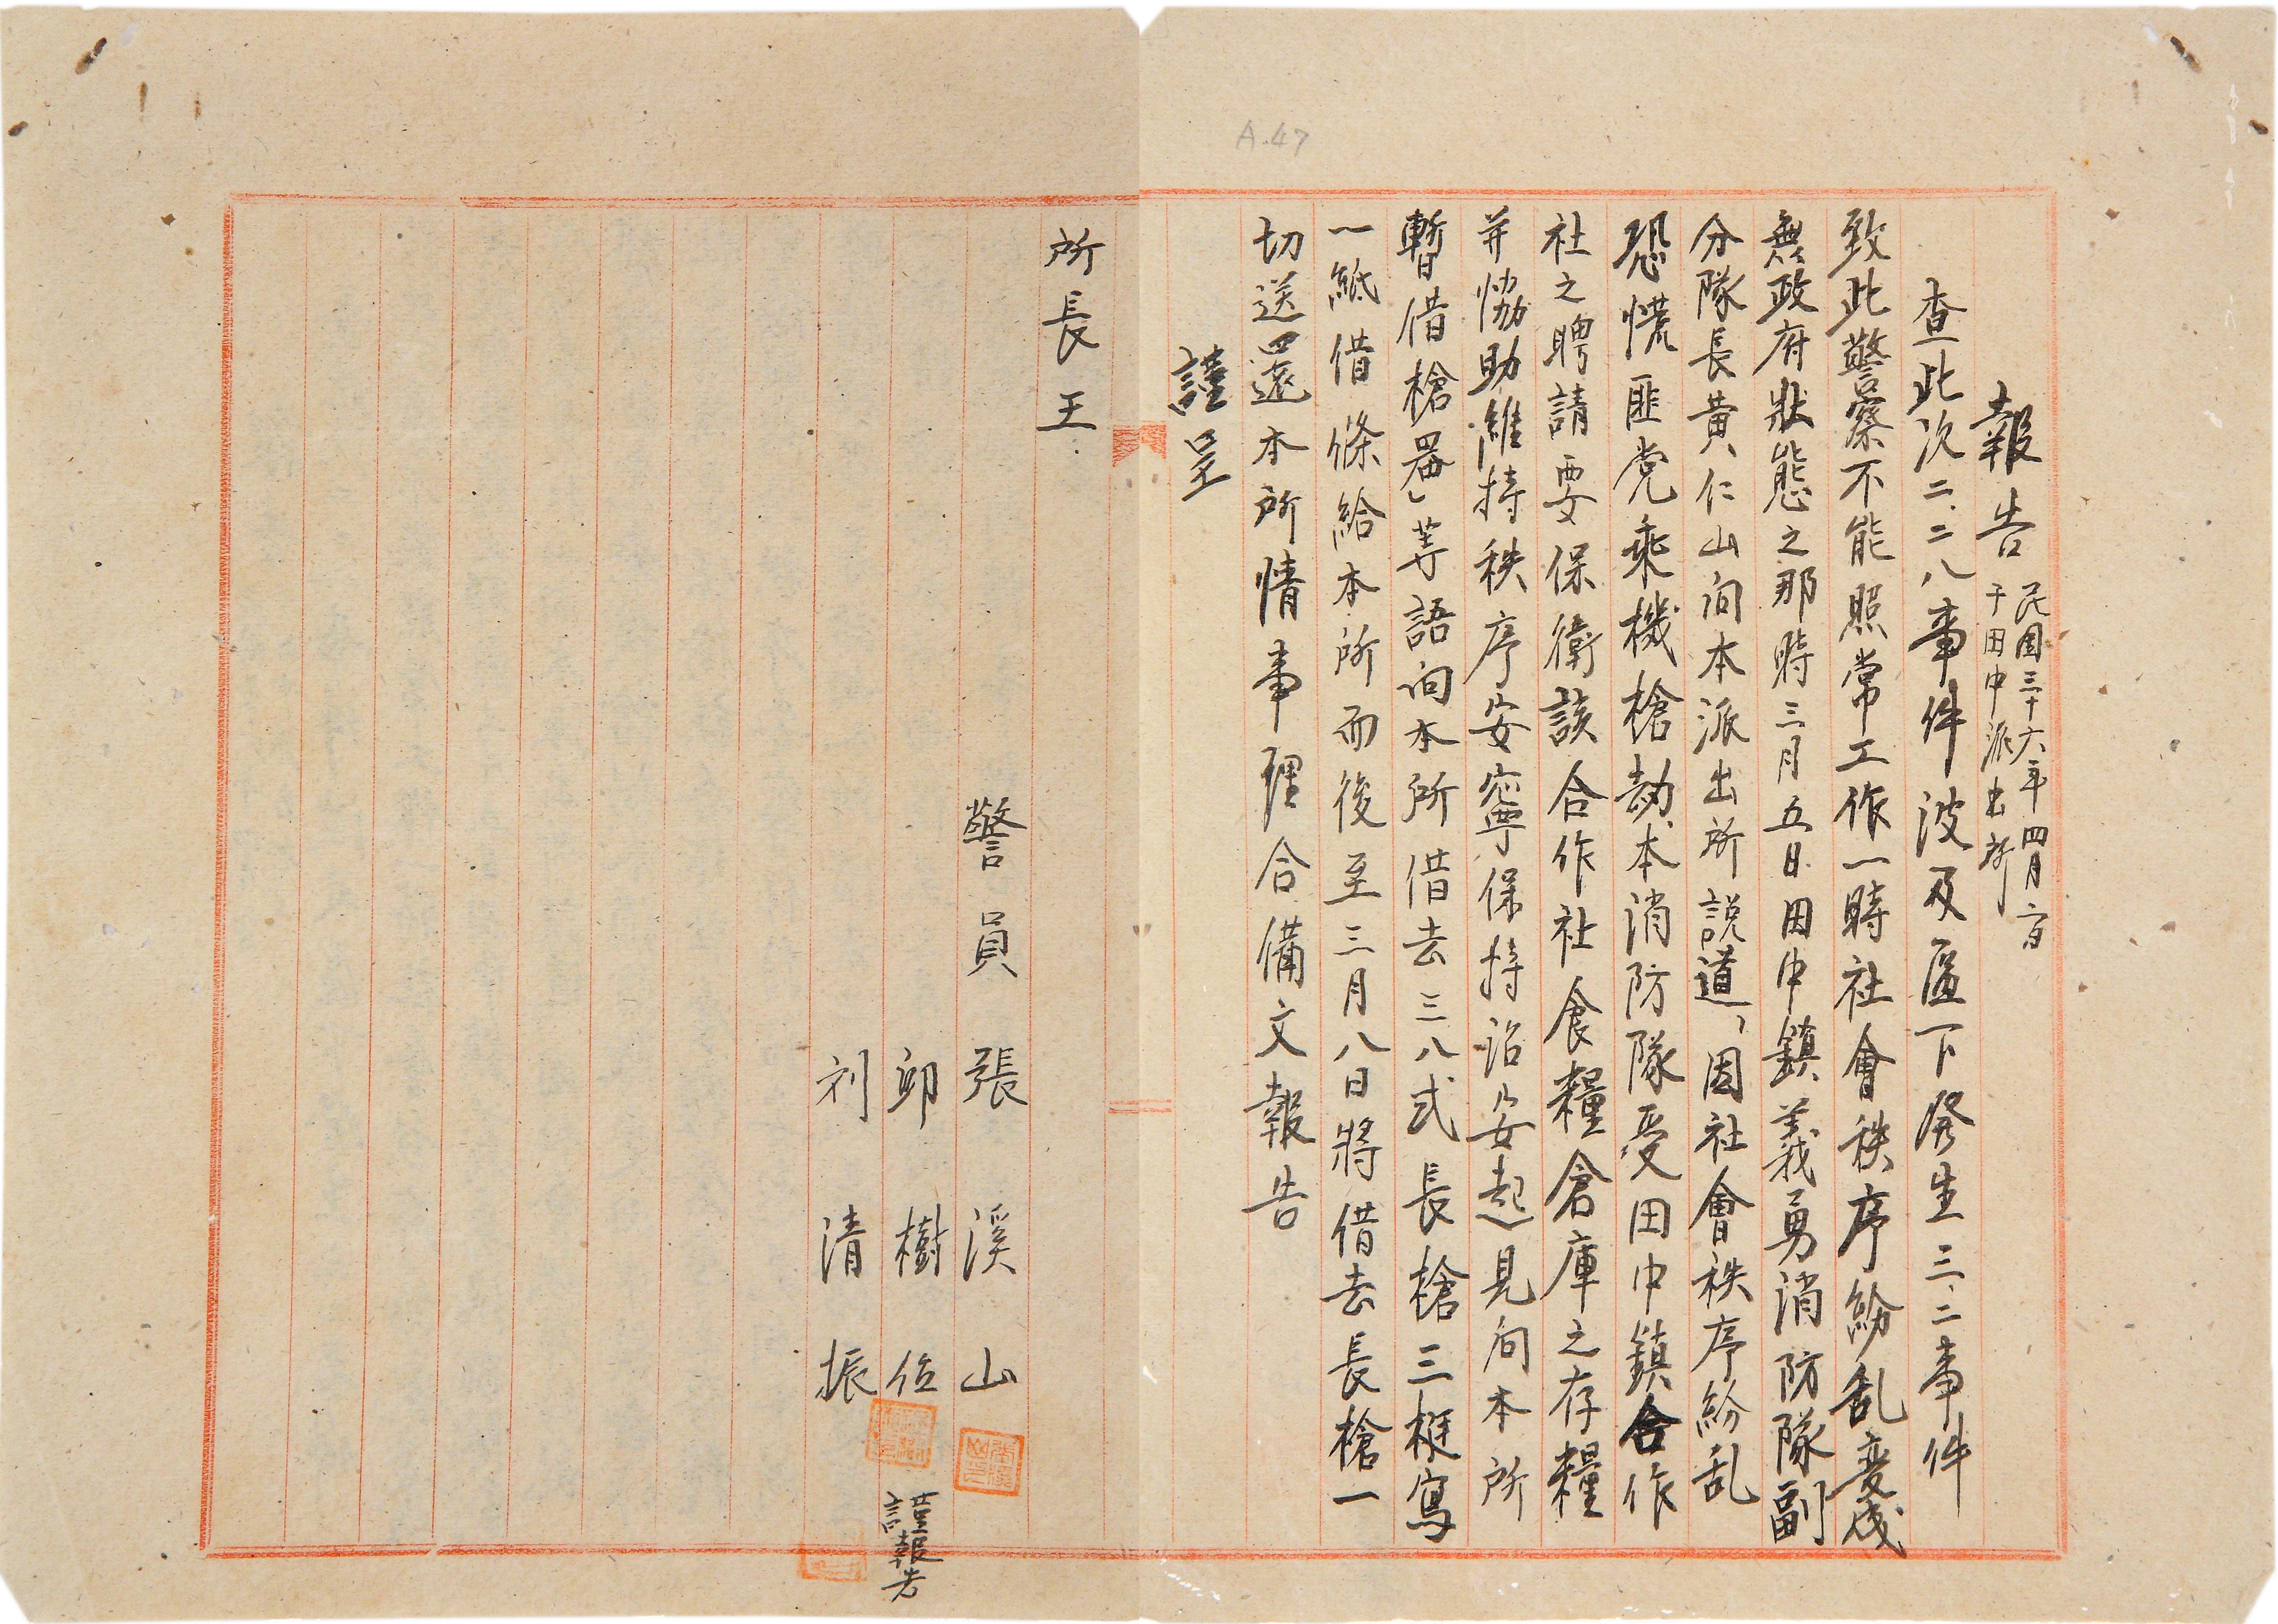 A.47
報告
民国三十六年四月六日
于田中派出所
查此次二、二八事件波及區下発生三、二事件
致此警察不能照常工作一時社會秩序紛乱变成
無政府狀態之那時三月五日田中鎮義勇消防隊副
分隊長黃仁山向本派出所說道「因社會秩序紛乱
恐慌匪党乘機槍劫本消防隊受田中鎮合作
社之聘請要保衛該合作社食糧倉庫之存糧
并恊助維持秩序安寧保持治安起見向本所
暫借槍器」等語向本所借去三八式長槍三梃寫
一紙借條給本所而後至三月八日將借去長槍一
切送回還本所情事理合備文報告
謹呈
所長王
警員張溪山
邱樹位
刘清振
謹報告